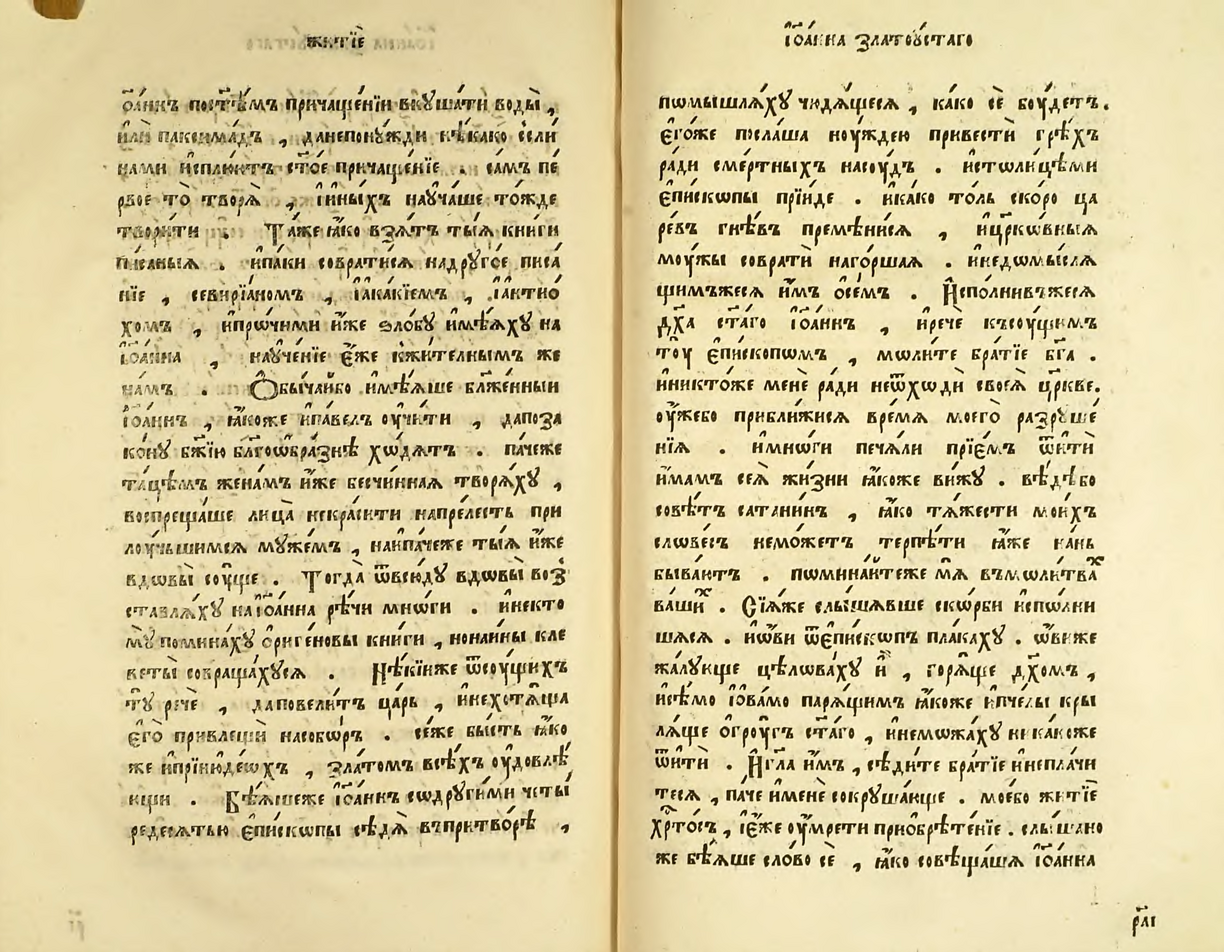 житїѐ
ѡ҆а́ннъ посте́мъ причаще́нїи вкꙋша́ти воды̀ ,
илѝ паксима́дъ , данепонꙋ́жди нѣ́како сли́
нами испл́юютъ ст҃ое причаще́нїе . са́мъ пе́
рвое то̀ творѧ̀ , і҆и́ныхъ наꙋча́ше то́жде
твори́ти . Та́же ꙗ҆́ко взѧ́тъ тыѧ҆̀ кни́ги
пи́саныѧ . и҆па́ки собрати́сѧ надрꙋго́е писа́
нїе , севирїа́номъ , і҆ака́кїемъ , і҆антїо́
хомъ , и҆про́чими и҆́же ѕло́бꙋ и҆мѣ́ѧхꙋ на
і҆ѡа́нна , наꙋче́нїе є҆́же кжите́лнымъ же
на́мъ . Ѻ҆бы́чайбо имѣ́ѧше бл҃же́нныи
і҆ѡа́ннъ , ꙗ҆́коже и҆па́велъ оу҆чи́ти , дапоза
ко́нꙋ бж҃їю бл҃гоѡ҆бра́знѣ хо́дѧтъ . па́чеже
таце́мъ жена́мъ и҆́же бесчи́ннаѧ творѧ́хꙋ ,
воспреща́ше лица̀ некра́сити напре́лесть при
лоꙋ́чьшимсѧ мꙋже́мъ , наипа́чеже тыѧ҆̀ и҆́же
вдовы̀ сꙋ́ще . Тогда̀ ѿвсю́дꙋ вдовы̀ воз
ставлѧ́хꙋ наі҆ѡа́нна рѣ́чи мно́ги . и҆некто
мꙋ̀ помина́хꙋ ѻ҆риге́новы кни́ги , нонаины кле
веты̀ собраща́хꙋсѧ . Нѣ́кїиже ѿсꙋ́щихъ
тꙋ̀ речѐ , даповели́тъ ца́рь , и҆нехотѧ́ща
є҆го̀ привлещѝ насобо́ръ . се́же бы́сть ꙗ҆́ко
же и҆прїи́юдеѡхъ , зла́томъ всѣ́хъ оу҆довлѣ́
ющи . Бѣ́ѧшеже і҆ѡа́ннъ содрꙋги́ми четы́
редесѧтью є҆пи́скопы сѣдѧ̀ въпритво́рѣ ,
і҆ѡа́нна златоꙋ́стаго
помышлѧ́хꙋ чюдѧ́щесѧ , ка́ко сѐ боꙋ́детъ .
є҆го́же посла́ша ноꙋ́ждею привестѝ грѣ́хъ
ра́ди сме́ртныхъ насоꙋ́дъ . и҆столи́цѣми
є҆пи́скопы прїи́де . и҆ка́ко то́ль ско́ро ца́
ревъ гнѣ́въ премѣни́сѧ , и҆цр҃ко́вныѧ
моꙋ́жы собратѝ наго́ршаѧ . и҆недомы́слѧ
щимъжесѧ и҆̀мъ ѻ҆се́мъ . И҆спо́лнивъжесѧ
дх҃а ст҃а́го і҆ѡа́ннъ , и҆речѐ късоꙋ́щимъ
тоꙋ̀ є҆пи́скопомъ , моли́те бра́тїе бг҃а .
и҆никто́же менѐ ра́ди неѿходѝ своеѧ҆̀ цр҃кве .
оу҆́жебо прибли́жисѧ вре́мѧ моего̀ разрꙋше́
нїѧ . и҆мно́ги печа́ли прїе́мъ ѿи́тѝ
и҆́мамъ сеѧ҆̀ жи́зни ꙗ҆́коже ви́жꙋ . вѣ́дѣбо
совѣ́тъ сатани́нъ , ꙗ҆́ко тѧ́жести мои́хъ
слове́съ немо́жетъ терпѣ́ти ꙗ҆́же на́нь
быва́ютъ . помина́йтеже мѧ̀ въмоли́тваⷯ
ва́шиⷯ . Сїѧ́же слы́шавше ско́рби и҆спо́лни
шасѧ . и҆ѡ҆́ви ѿє҆пи́скопъ пла́кахꙋ . ѡ҆́виже
жа́лꙋюще цѣлова́хꙋ и҆̀ , горѧ́ще дх҃омъ ,
и҆сѣ́мо і҆ова́мо парѧ́щимъ ꙗ҆́коже и҆пче́лы кры
лѧ́ще ѻ҆гроꙋ́гъ ст҃а́го , и҆неможа́хꙋ ника́коже
ѿи́тѝ . И҆гл҃а и҆̀мъ , сѣди́те бра́тїе и҆непла́чи
тесѧ , па́че и҆́мене сокрꙋша́юще . моебо житїѐ
хрⷭ҇то́съ , і҆є҆́же оу҆мре́ти приѡбрѣ́тенїе . слы́шано
же бѣ́ѧше сло́во сѐ , ꙗ҆́ко совѣща́шѧ і҆ѡа́нна
рл҃і